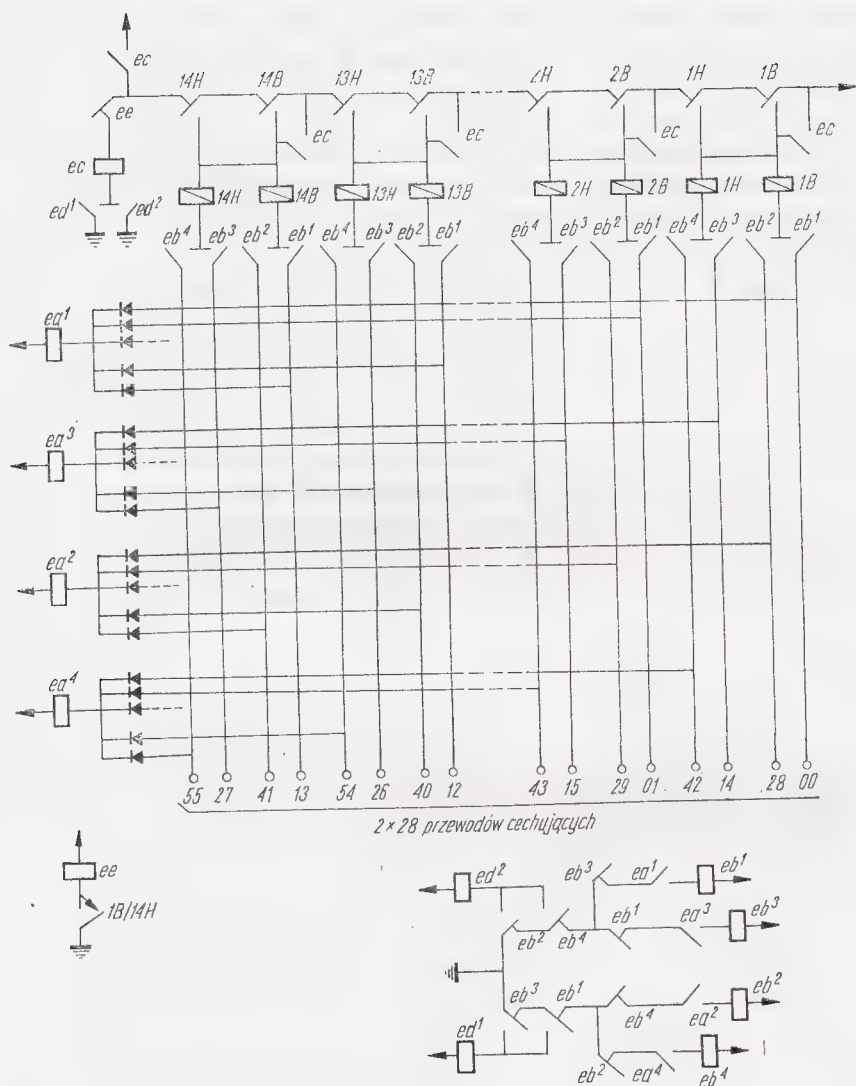 ec
14H 14B 13H 13B 2H 2B 1H 1B
ee
ec ec ec ec
ec
14H 14B 13H 13B 2H 2B 1H 1B
ed¹ ed²
eb⁴ eb³ eb² eb¹ eb⁴ eb³ eb² eb¹ eb⁴ eb³ eb² eb¹ eb⁴ eb³ eb² eb¹
ea¹
ea³
ea²
ea⁴
55 27 41 13 54 26 40 12 43 15 29 01 42 14 28 00
2×28 przewodów cechujących
ee
1B/14H
ed² eb³ ea¹ eb¹
eb² eb⁴ eb¹ ea³ eb³
eb³ eb¹ eb⁴ ea² eb²
ed¹ eb² ea⁴ eb⁴